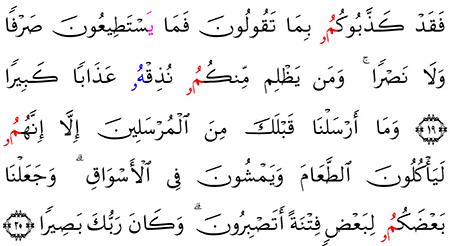 فَقَدْ كَذَّبُوكُمُۥ بِمَا تَقُولُونَ فَمَا يَسْتَطِيعُونَ صَرْفًا
وَلَا نَصْرًا ۚ وَمَن يَظْلِم مِّنكُمُۥ نُذِقْهُۥ عَذَابًا كَبِيرًا
﴿١٩﴾ وَمَا أَرْسَلْنَا قَبْلَكَ مِنَ الْمُرْسَلِينَ إِلَّا إِنَّهُمُۥ
لَيَأْكُلُونَ الطَّعَامَ وَيَمْشُونَ فِى الْأَسْوَاقِ ۗ وَجَعَلْنَا
بَعْضَكُمُۥ لِبَعْضٍ فِتْنَةً أَتَصْبِرُونَ ۗ وَكَانَ رَبُّكَ بَصِيرًا ﴿٢٠﴾